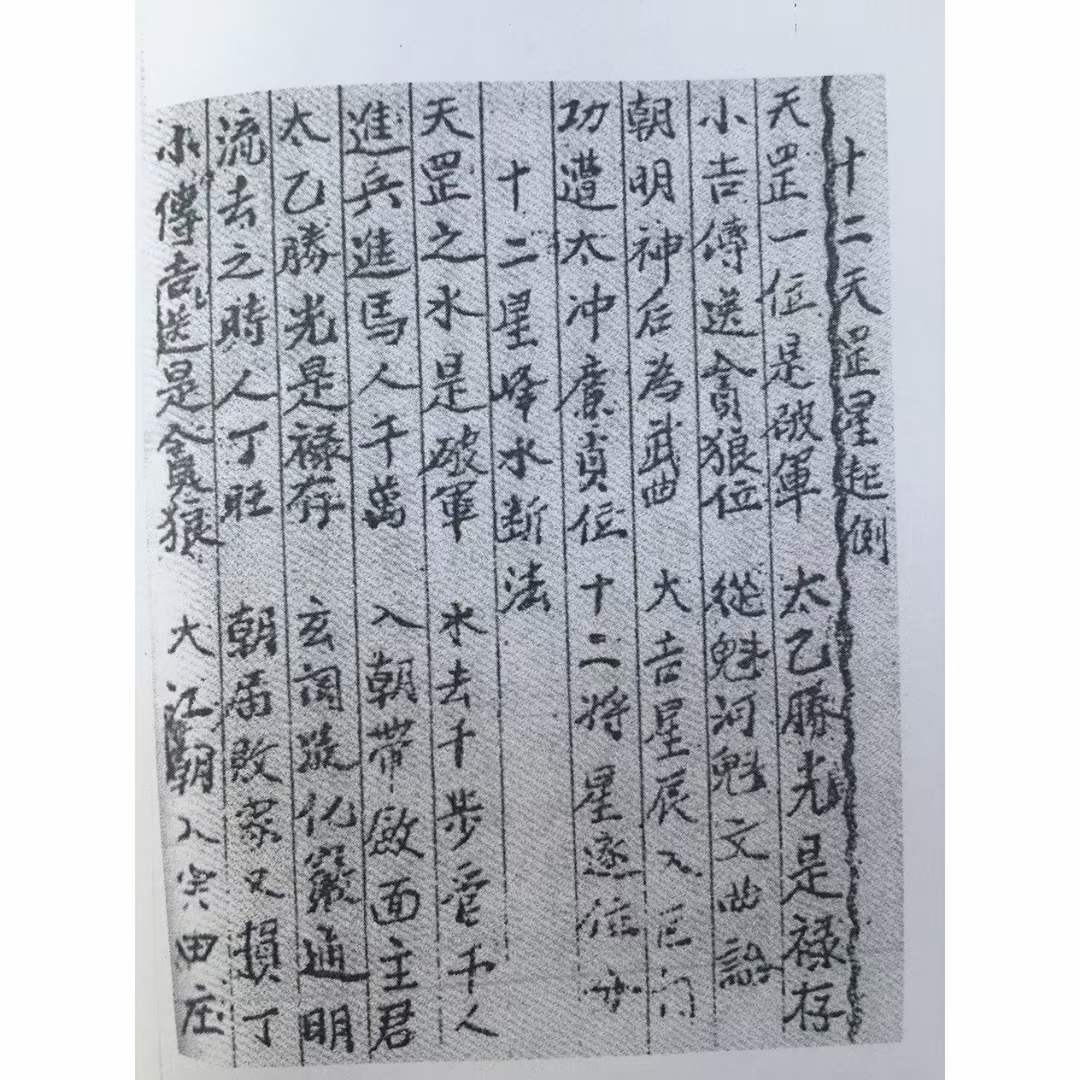 十二天罡星起例
天罡一位是破軍　太乙勝光是禄存
小吉傳送貪狼位　從魁河魁文曲
朝明神后為武曲　大吉星辰入巨门
功遭太冲廉貞位　十二將星逐位
十二星峰水断法
天罡之水是破軍　水去千步管千人
進兵進馬人千萬　入朝帶敛面主君
太乙勝光是禄存　玄化竅通明
流去之時人丁旺　朝屠敗家又損丁
小傳吉送是貪狼　大江朝入买田庄